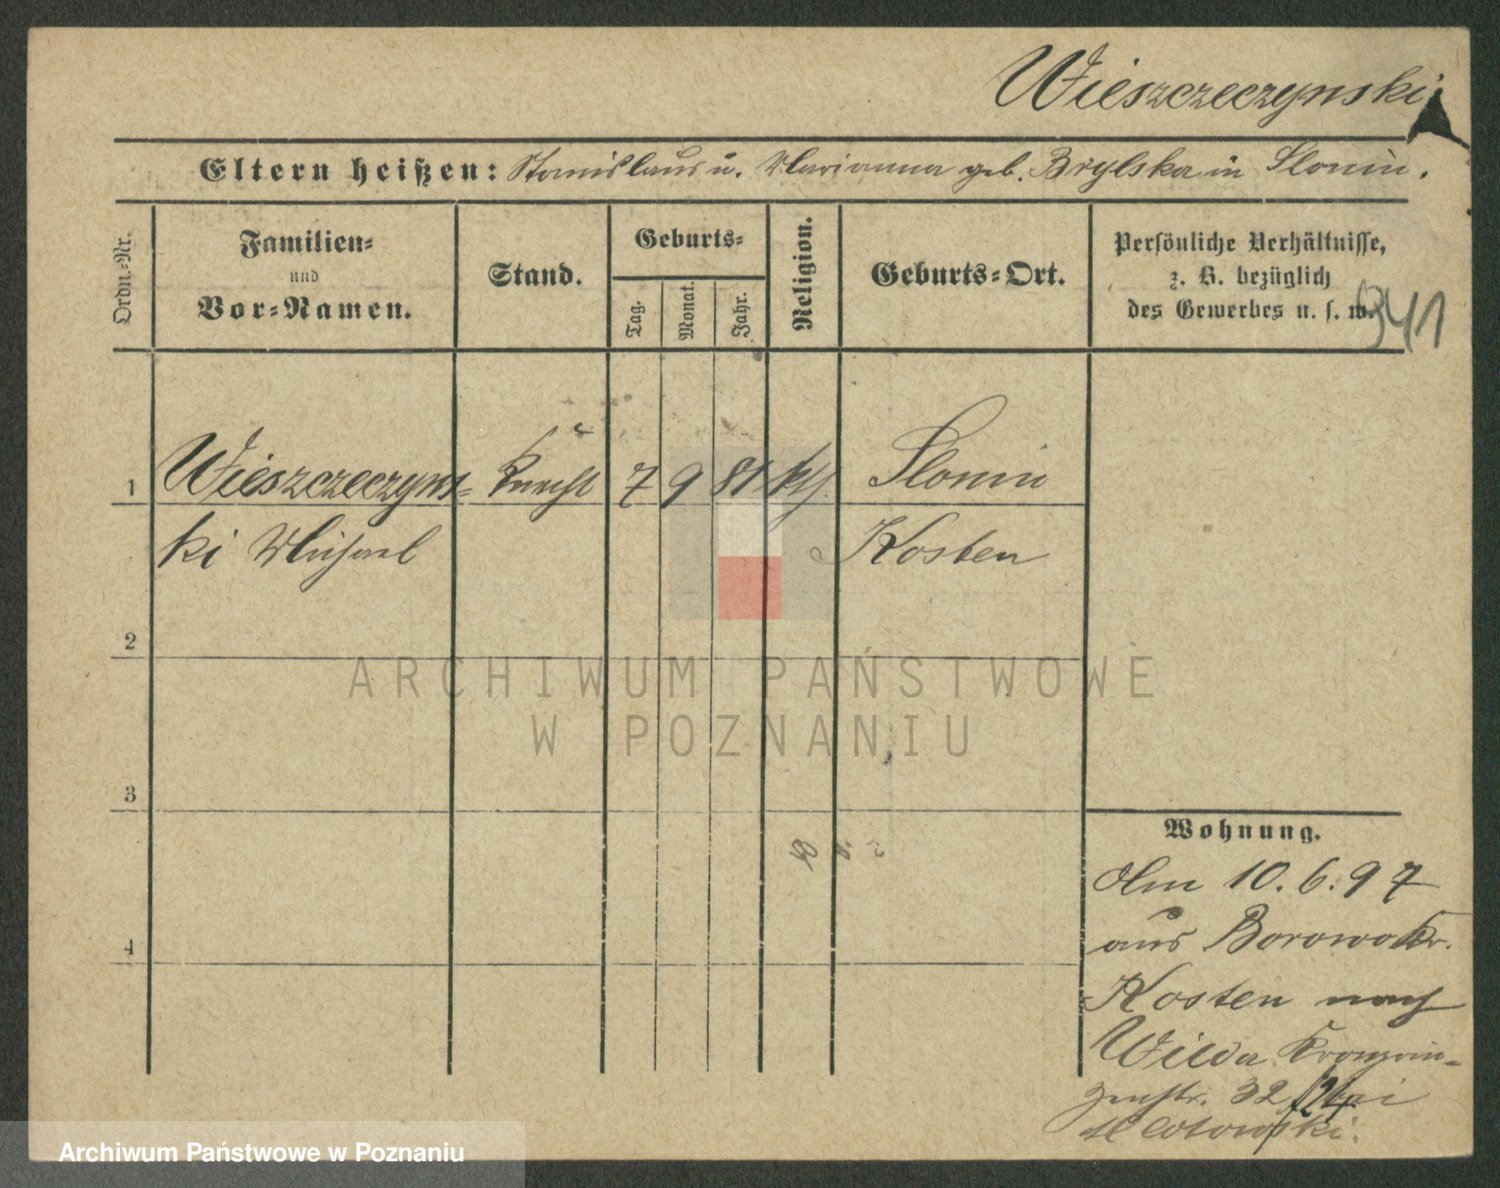 Wieszczeczynski
Eltern heißen: Stanislaus u. Marianna geb. Brylska in Slonin.
Ordn.-Nr.
Familien-
und
Vor-Namen.
Stand.
Geburts-
Tag.
Monat.
Jahr.
Religion.
Geburts-Ort.
Persönliche Verhältnisse,
z. B. bezüglich
des Gewerbes u. s. w.
341
1 Wieszczeczyns- Knecht 7 9 81 kth. Slonin
ki Michael Kosten
2
3
4
Wohnung.
Am 10. 6. 97
aus Borowo Kr.
Kosten nach
Wilda Kronprin-
zenstr. 32/24 bei
ARCHIWUM PAŃSTWOWE
W POZNANIU
Archiwum Państwowe w Poznaniu